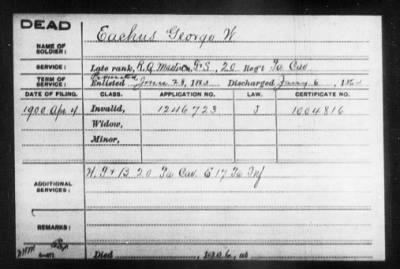 DEAD
NAME OF SOLDIER: Eachus George W
SERVICE: Late rank, F & S, 20 Reg't Pa Cav
TERM OF SERVICE: Enlisted June 28, 186 Discharged Jany 6, 186
DATE OF FILING. CLASS. APPLICATION NO. LAW. CERTIFICATE NO.
1900 Apr 4 Invalid, 1246723 J 1004816
Widow,
Minor,
ADDITIONAL SERVICES: B 20 Pa Cav. 17 Pa Inf
REMARKS:
Died , 190 , at